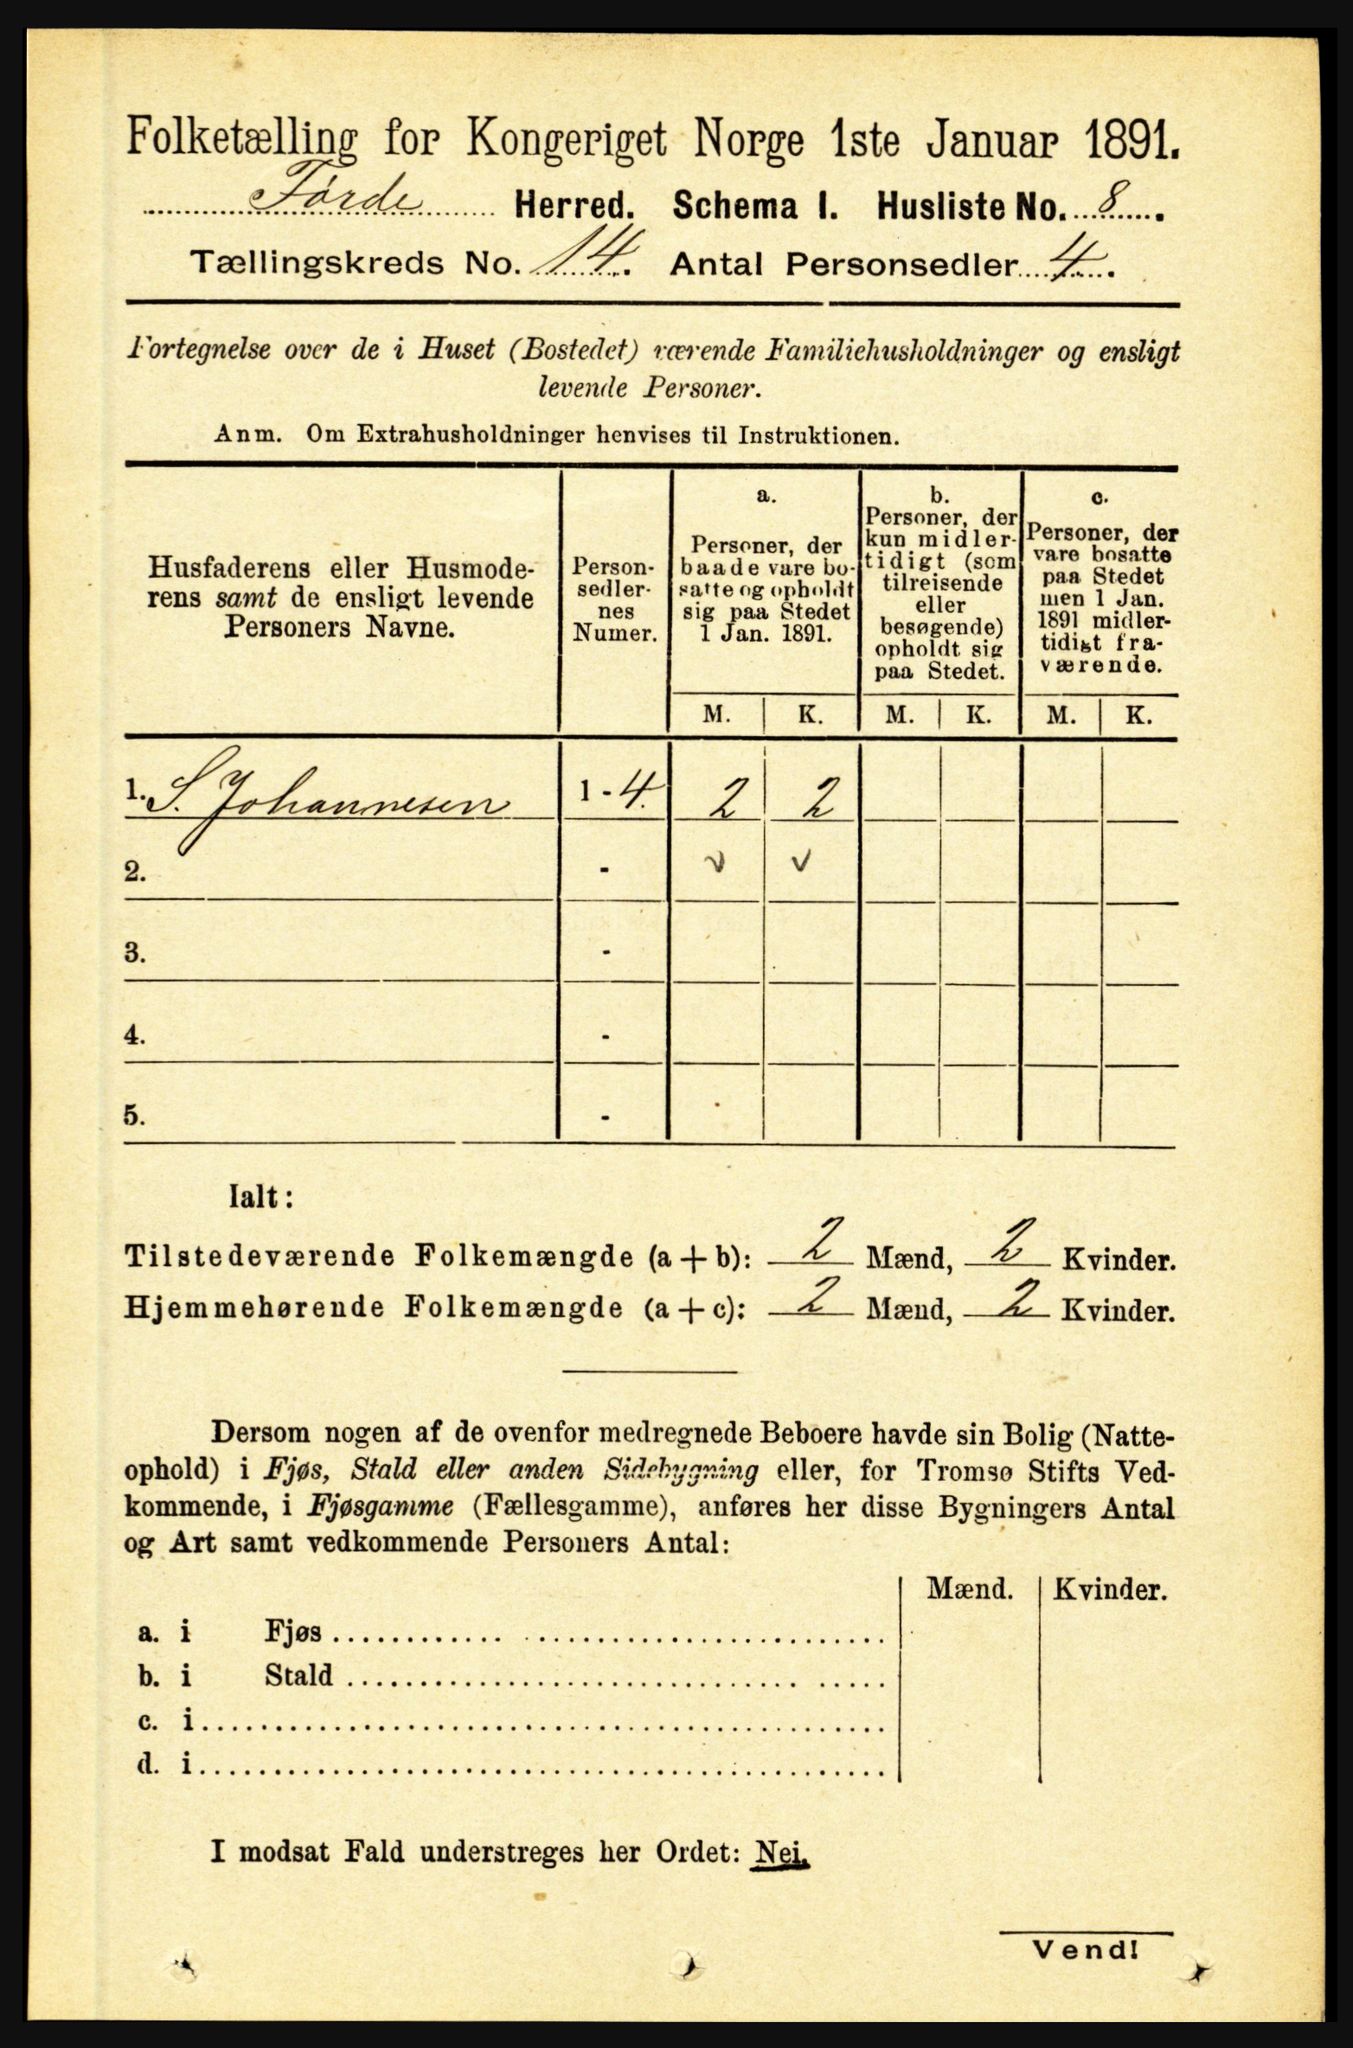 Folketælling for Kongeriget Norge 1ste Januar 1891.
Førde Herred. Schema I. Husliste No. 8.
Tællingskreds No. 14. Antal Personsedler 4.
Fortegnelse over de i Huset (Bostedet) værende Familiehusholdninger og ensligt
levende Personer.
Anm. Om Extrahusholdninger henvises til Instruktionen.
Husfaderens eller Husmode-
rens samt de ensligt levende
Personers Navne.
Person-
sedler-
nes
Numer.
a.
Personer, der
baade vare bo-
satte og opholdt
sig paa Stedet
1 Jan. 1891.
b.
Personer, der
kun midler-
tidigt (som
tilreisende
eller
besøgende)
opholdt sig
paa Stedet.
c.
Personer, der
vare bosatte
paa Stedet
men 1 Jan.
1891 midler-
tidigt fra-
værende.
M. K. M. K. M. K.
1. S. Johannesen 1 - 4. 2 2
2. - v v
3. -
4. -
5. -
Ialt:
Tilstedeværende Folkemængde (a + b): 2 Mænd, 2 Kvinder.
Hjemmehørende Folkemængde (a + c): 2 Mænd, 2 Kvinder.
Dersom nogen af de ovenfor medregnede Beboere havde sin Bolig (Natte-
ophold) i Fjøs, Stald eller anden Sidebygning eller, for Tromsø Stifts Ved-
kommende, i Fjøsgamme (Fællesgamme), anføres her disse Bygningers Antal
og Art samt vedkommende Personers Antal:
Mænd. Kvinder.
a. i Fjøs
b. i Stald
c. i
d. i
I modsat Fald understreges her Ordet: Nei.
Vend!